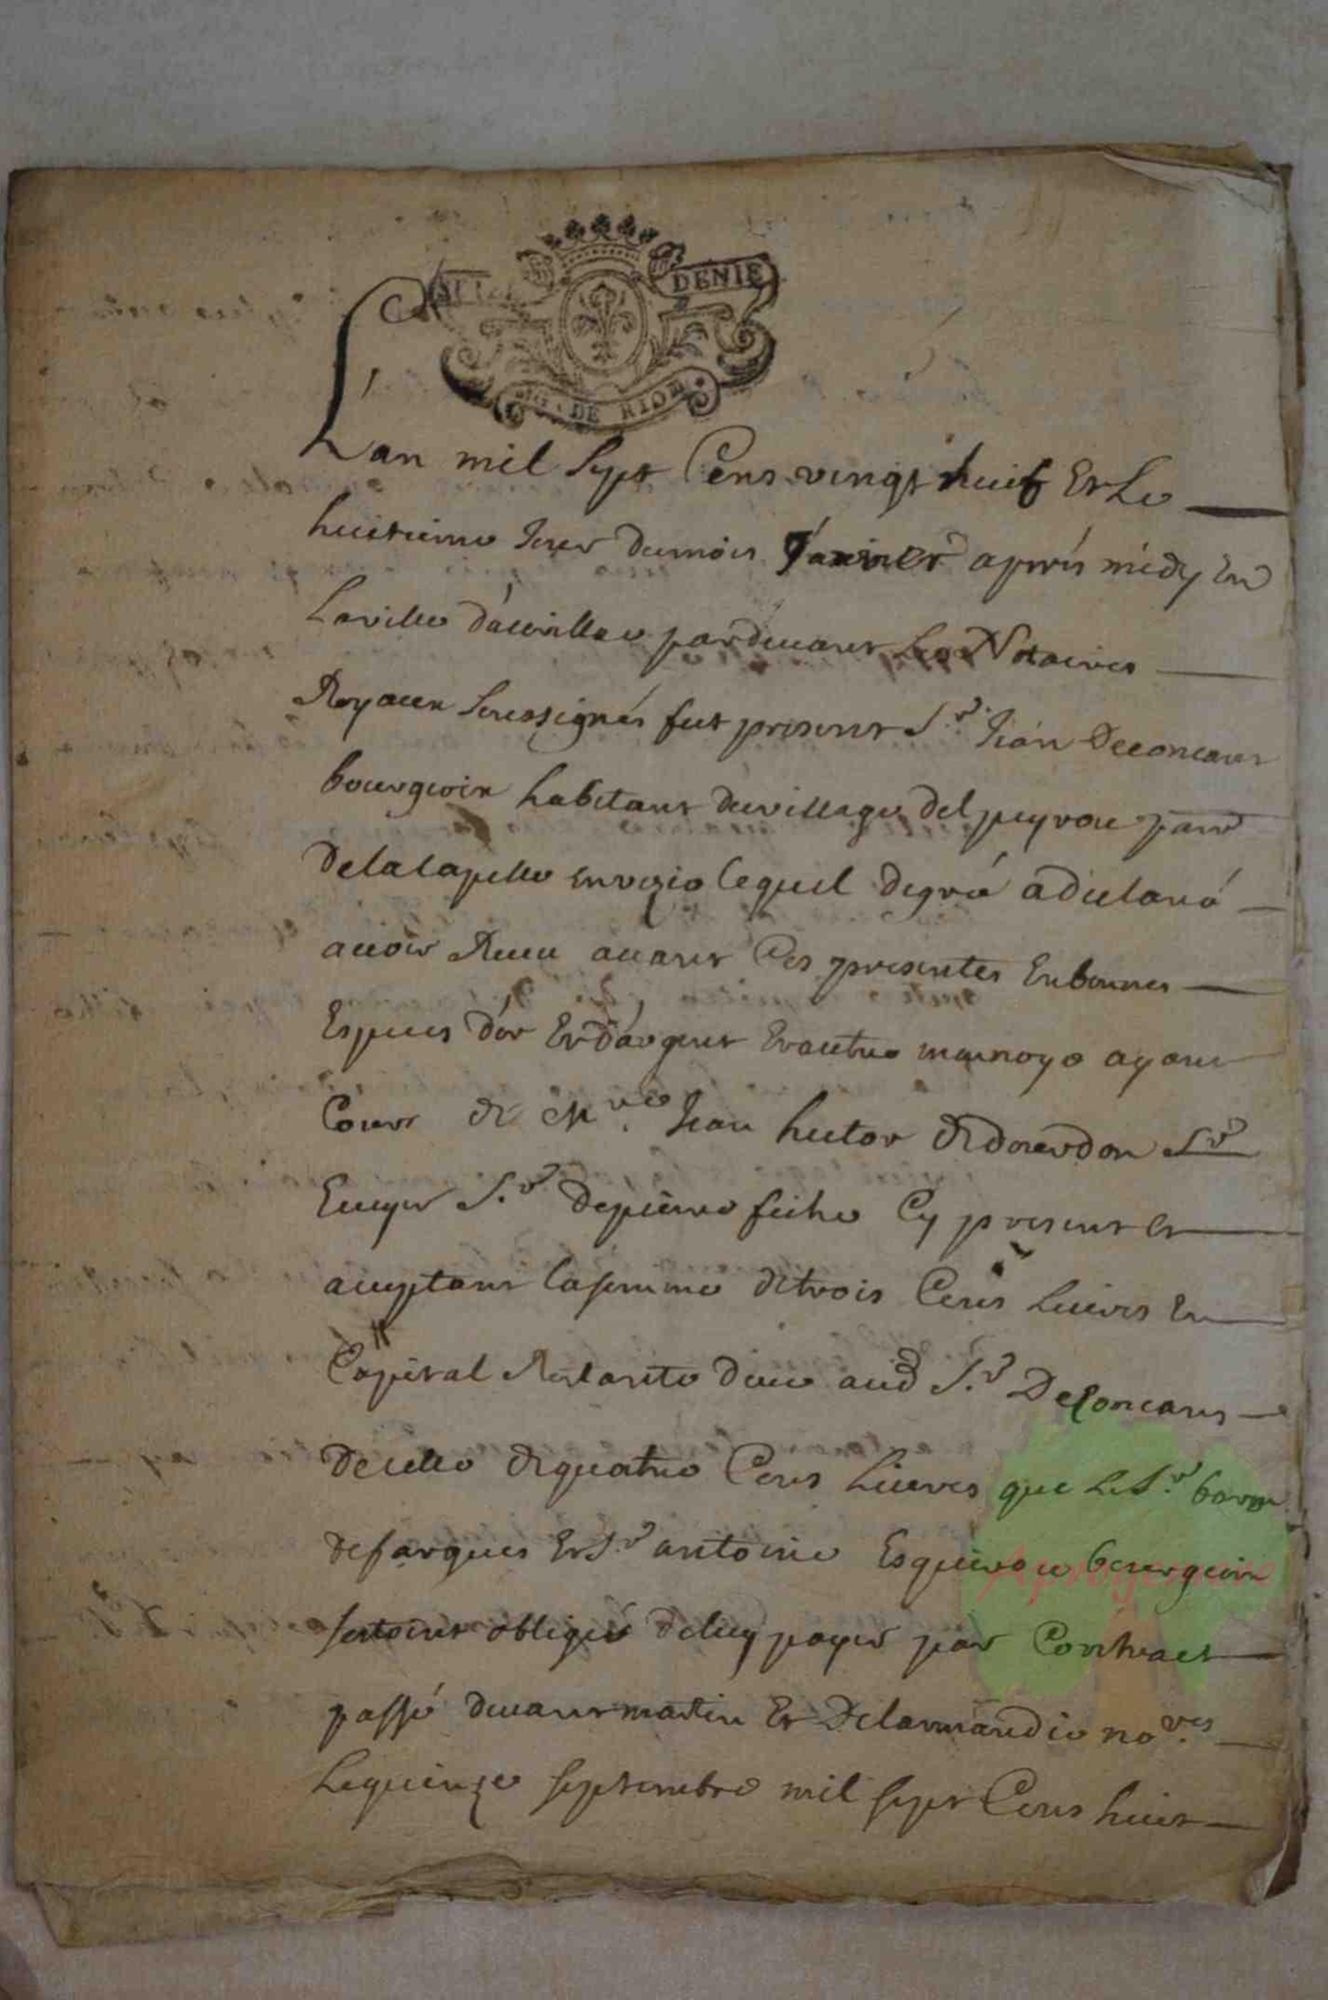 DENIE
DE RIOM
L'an mil Sept Cens vingt huit Et Le
huitieme Jour dumois Janvier apres midy En
Laville d'aurillac pardevant Les Notaires
Royaux Soussignés fut present S.r Jean Deconcans
bourgeois habitant duvillage del peyrou parr
Delacapelle envezie lequel degré adeclaré
avoir Receu avant Ces presentes Enbonnes
Especes d'or Et d'argent Et autre monoye ayant
Cours de M.re Jean hector de
Ecuyer S.r depierre fiche Cy present et
acceptant lasomme detrois Cens Livres En
Capital Restante deue aud S.r Deconcans
decelle dequatre Cens Livres que Le S.r baron
defargues Et S.r antoine Esquirou bourgeois
sestoient obligés deluy payer par Contract
passé devant martin Et Delarmandie no.res
Lequinze septembre mil sept Cens huit